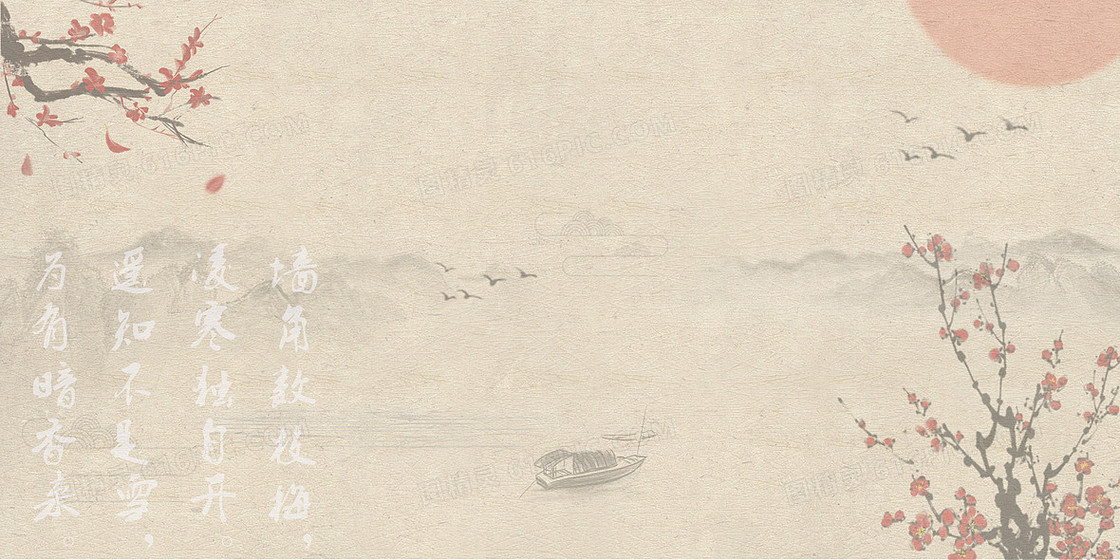 墙角数枝梅，
凌寒独自开
遥知不是雪，
为有暗香来。
图精灵 616PIC.COM
图精灵 616PIC.COM
图精灵 616PIC.COM
图精灵 616PIC.COM
图精灵 616PIC.COM
图精灵 616PIC.COM